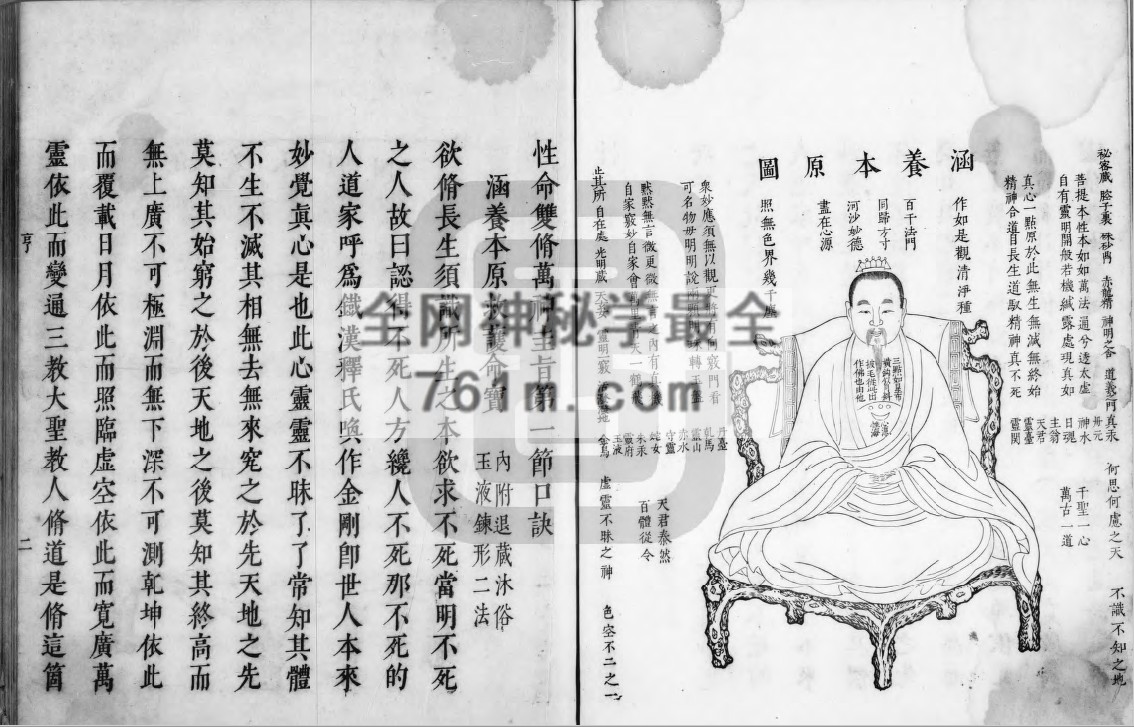 涵養本原圖
秘密藏 腔子裏 硃砂鼎 赤龍精 神明之舍 道義之門
菩提本性本如如萬法通兮透太虛
自有靈明開般若機緘露處現真如
真心一點原於此無生無滅無終始
精神合道自長生道馭精神真不死
真汞
丹元
神水
日魂
主翁
天君
靈臺
靈關
何思何慮之天
不識不知之地
千聖一心
萬古一道
作如是觀清淨種
百千法門
同歸方寸
河沙妙德
盡在心源
照無色界幾千塵
眾妙應須無以觀更將有向竅門看
可名物毋明明說
默默無言微更微無有之內有
自家竅妙自家會
止其所 自在處 光明藏
丹臺
乩馬
靈山
赤水
守靈
姹女
朱汞
靈府
玉液
金烏
天君泰然
百體從令
虛靈不昧之神
色空不二之一
性命雙脩萬神圭旨第一節口訣
涵養本原救護命寶
內附退藏沐浴
玉液鍊形二法
欲脩長生須識所生之本欲求不死當明不死
之人故曰認得不死人方纔人不死那不死的
人道家呼爲鐵漢釋氏喚作金剛卽世人本來
妙覺眞心是也此心靈靈不昧了了常知其體
不生不滅其相無去無來究之於先天地之先
莫知其始窮之於後天地之後莫知其終高而
無上廣不可極淵而無下深不可測乾坤依此
而覆載日月依此而照臨虛空依此而寬廣萬
靈依此而變通三教大聖教人脩道是脩這箇
亨
二
全网神秘学最全
761m.com